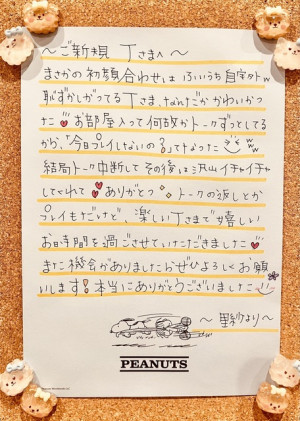 ～ご新規 Tさまへ～
まさかの初顔合わせは ふいうち自宅外w
恥ずかしがってるTさま、なんだかかわいかっ
た お部屋入って何故かトークずっとしてる
から、「今日プレイしないの?」ってなったw
結局トーク中断してその後に沢山イチャイチャ
してくれて ありがとう トークの返しとか
プレイもだけど、楽しいTさまで嬉しい
お時間を過ごさせていただきました
また機会がありましたらぜひよろしくお願
いします!本当にありがとうございました
～里紗より～
PEANUTS